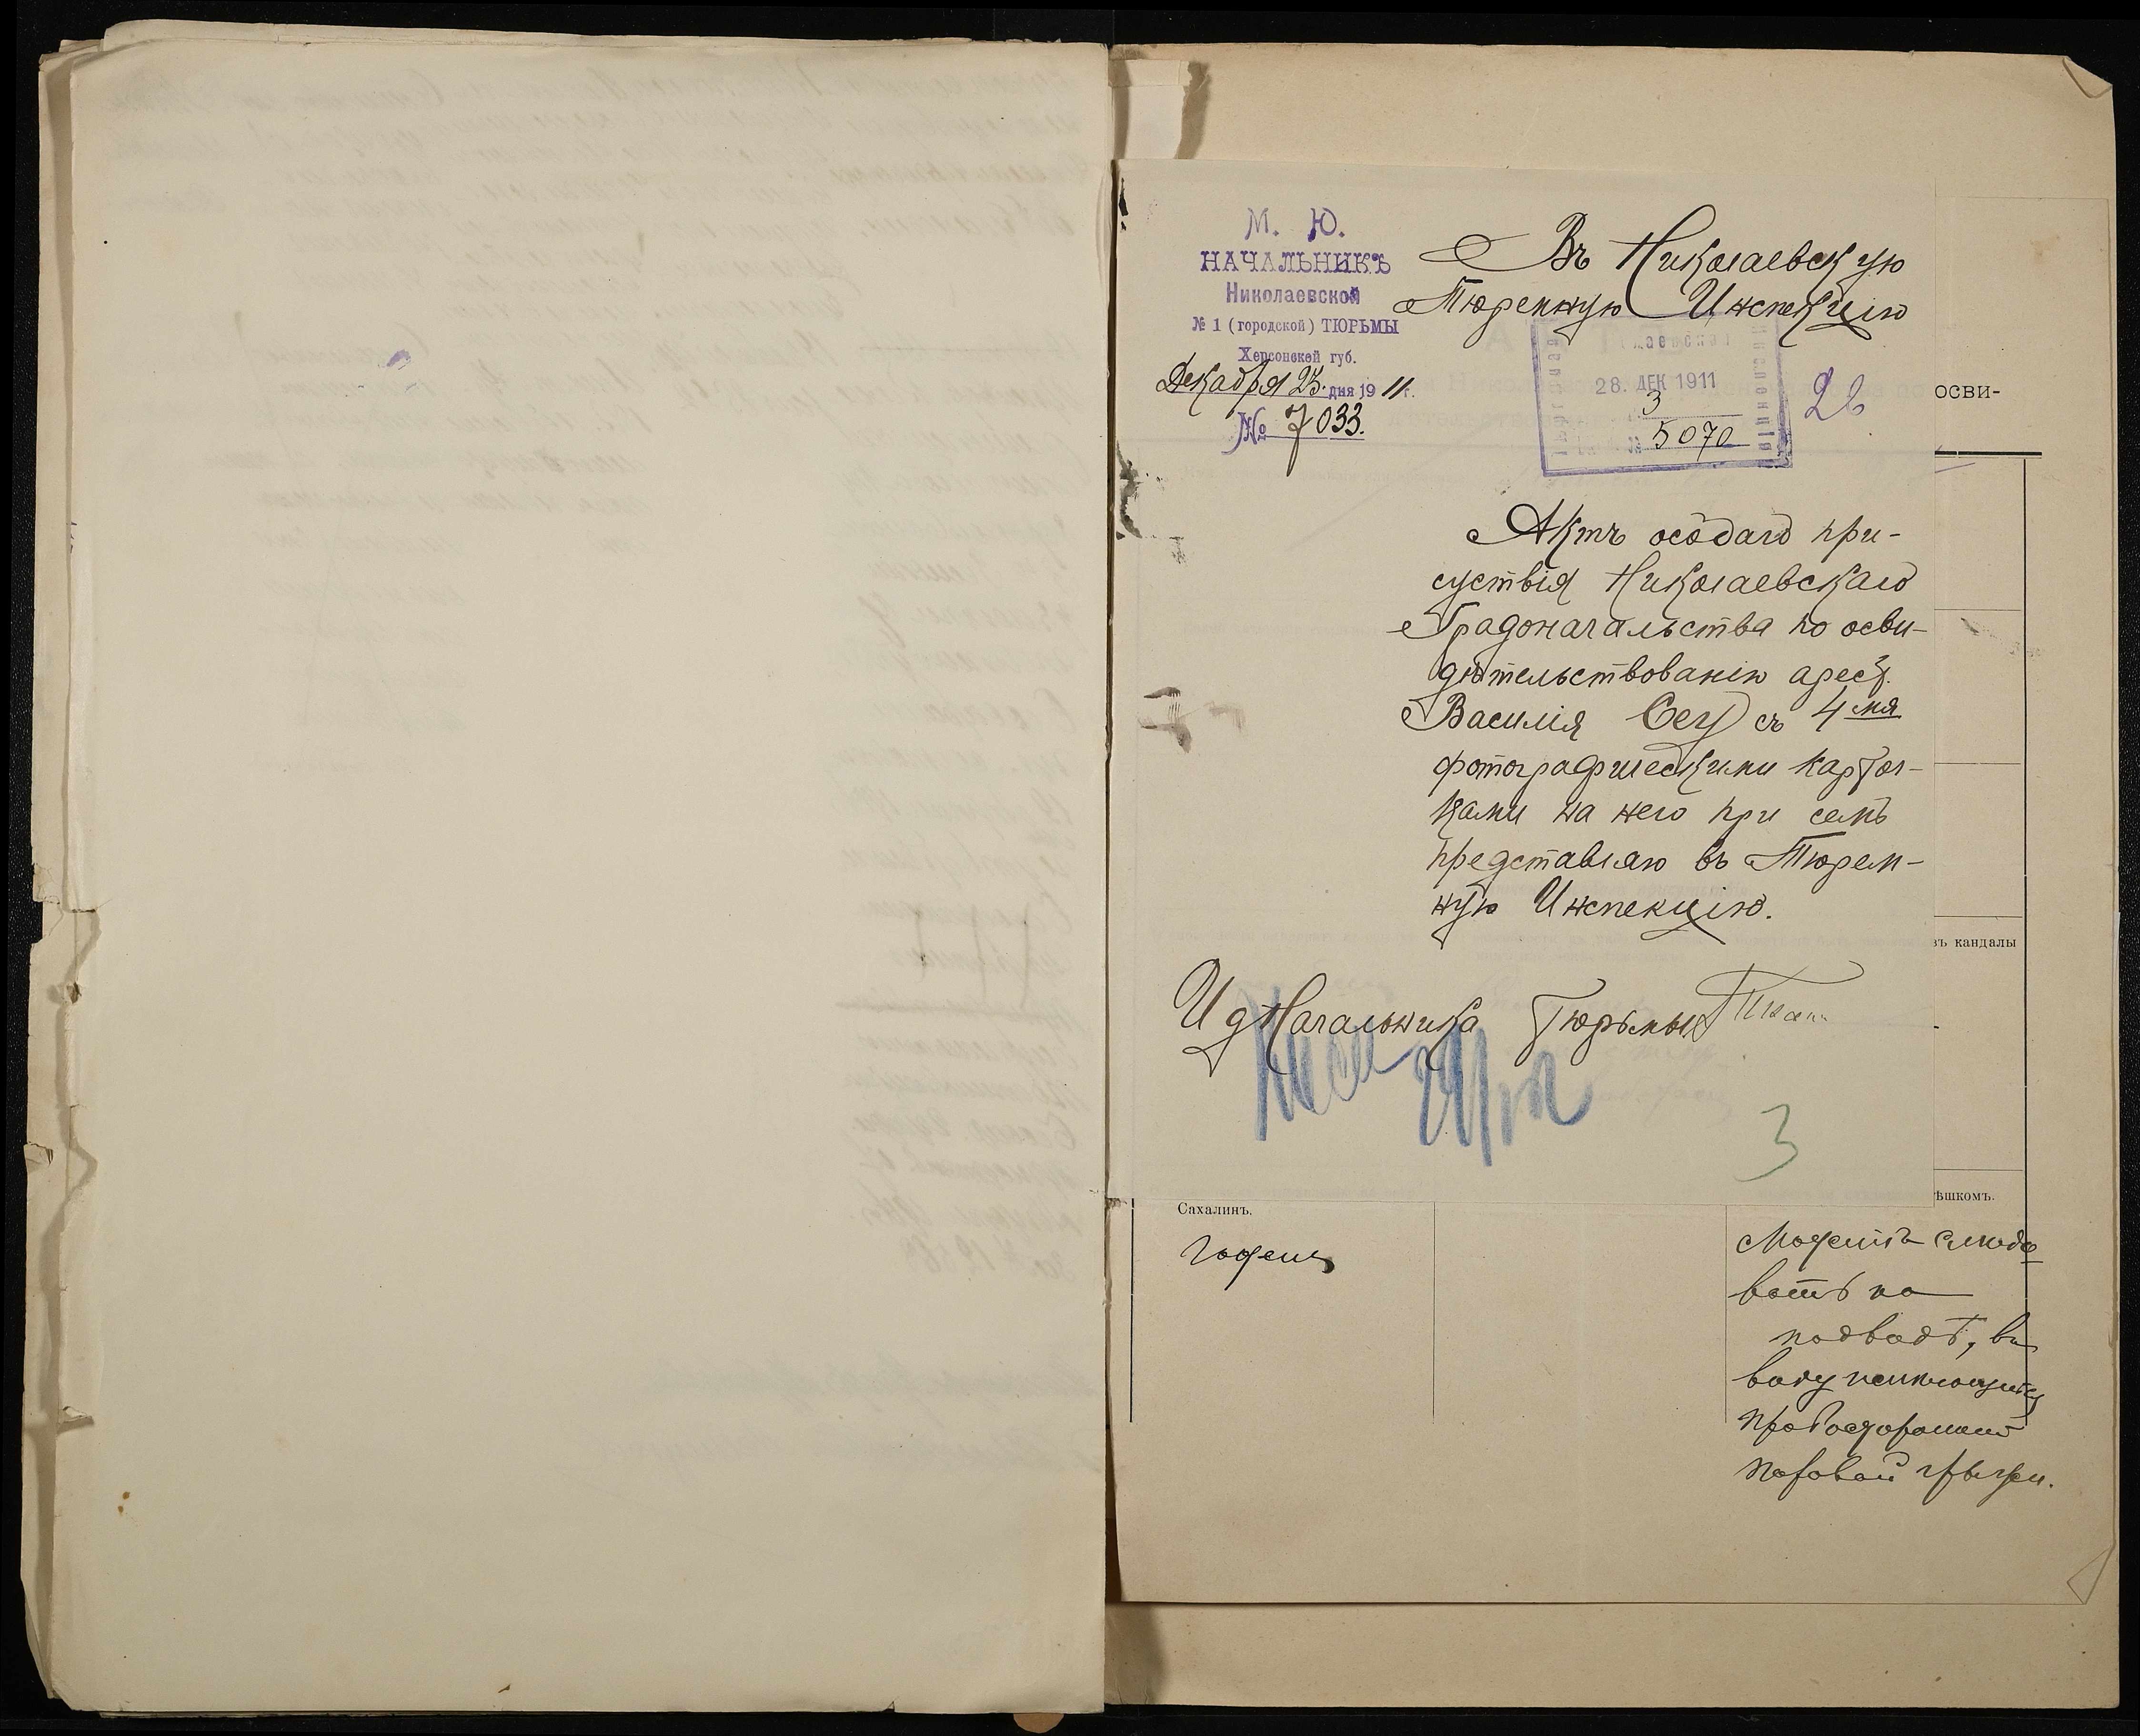 М. Ю.
НАЧАЛЬНИКЪ
Николаевской
№ 1 (городской) ТЮРЬМЫ
Херсонской губ.
Декабря 23 дня 1911 г.
№ 7033.
Въ Николаевскую
Тюремную Инспекцію
28. ДЕК 1911
3
5070
осви-
Актъ особаго при-
суствія Николаевскаго
Градоначальства по осви-
дѣтельствованію арест.
Василія съ 4мя
фотографическими карточ-
ками на него при семъ
представляю въ Тюрем-
ную Инспекцію.
въ кандалы
И д Начальника Тюрьмы
3
Сахалинъ.
ѣшкомъ.
Годенъ
Можетъ слѣдо
вать на
подводѣ, въ
виду имѣющейся
правосторонней
паховой грыжи.